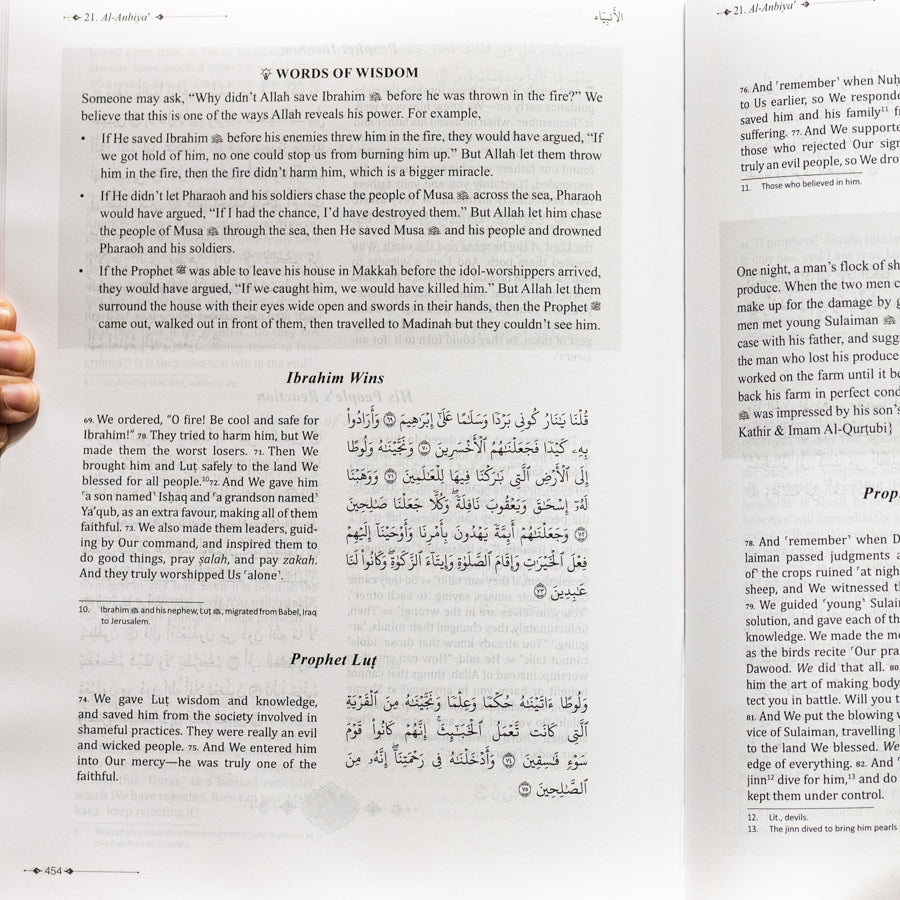 21. Al-Anbiya'
الأنبياء
WORDS OF WISDOM
Someone may ask, “Why didn’t Allah save Ibrahim ﷺ before he was thrown in the fire?” We
believe that this is one of the ways Allah reveals his power. For example,
• If He saved Ibrahim before his enemies threw him in the fire, they would have argued, “If
we got hold of him, no one could stop us from burning him up.” But Allah let them throw
him in the fire, then the fire didn’t harm him, which is a bigger miracle.
• If He didn’t let Pharaoh and his soldiers chase the people of Musa across the sea, Pharaoh
would have argued, “If I had the chance, I’d have destroyed them.” But Allah let him chase
the people of Musa through the sea, then He saved Musa and his people and drowned
Pharaoh and his soldiers.
• If the Prophet ﷺ was able to leave his house in Makkah before the idol-worshippers arrived,
they would have argued, “If we caught him, we would have killed him.” But Allah let them
surround the house with their eyes wide open and swords in their hands, then the Prophet ﷺ
came out, walked out in front of them, then travelled to Madinah but they couldn’t see him.
Ibrahim Wins
69. We ordered, “O fire! Be cool and safe for
Ibrahim!” 70. They tried to harm him, but We
made them the worst losers. 71. Then We
brought him and Luṭ safely to the land We
blessed for all people.¹⁰ 72. And We gave him
˹a son named˺ Isḥaq and ˹a grandson named˺
Ya’qub, as an extra favour, making all of them
faithful. 73. We also made them leaders, guid-
ing by Our command, and inspired them to
do good things, pray ṣalah, and pay zakah.
And they truly worshipped Us ˹alone˺.
قُلْنَا يَٰنَارُ كُونِى بَرْدًا وَسَلَٰمًا عَلَىٰٓ إِبْرَٰهِيمَ ٦٩ وَأَرَادُوا۟
بِهِۦ كَيْدًا فَجَعَلْنَٰهُمُ ٱلْأَخْسَرِينَ ٧٠ وَنَجَّيْنَٰهُ وَلُوطًا
إِلَى ٱلْأَرْضِ ٱلَّتِى بَٰرَكْنَا فِيهَا لِلْعَٰلَمِينَ ٧١ وَوَهَبْنَا
لَهُۥٓ إِسْحَٰقَ وَيَعْقُوبَ نَافِلَةً ۖ وَكُلًّا جَعَلْنَا صَٰلِحِينَ
٧٢ وَجَعَلْنَٰهُمْ أَئِمَّةً يَهْدُونَ بِأَمْرِنَا وَأَوْحَيْنَآ إِلَيْهِمْ
فِعْلَ ٱلْخَيْرَٰتِ وَإِقَامَ ٱلصَّلَوٰةِ وَإِيتَآءَ ٱلزَّكَوٰةِ ۖ وَكَانُوا۟ لَنَا
عَٰبِدِينَ ٧٣
10. Ibrahim and his nephew, Luṭ, migrated from Babel, Iraq
to Jerusalem.
Prophet Luṭ
74. We gave Luṭ wisdom and knowledge,
and saved him from the society involved in
shameful practices. They were really an evil
and wicked people. 75. And We entered him
into Our mercy—he was truly one of the
faithful.
وَلُوطًا ءَاتَيْنَٰهُ حُكْمًا وَعِلْمًا وَنَجَّيْنَٰهُ مِنَ ٱلْقَرْيَةِ
ٱلَّتِى كَانَت تَّعْمَلُ ٱلْخَبَٰٓئِثَ ۗ إِنَّهُمْ كَانُوا۟ قَوْمَ
سَوْءٍ فَٰسِقِينَ ٧٤ وَأَدْخَلْنَٰهُ فِى رَحْمَتِنَآ ۖ إِنَّهُۥ مِنَ
ٱلصَّٰلِحِينَ ٧٥
454
21. Al-Anbiya'
76. And ˹remember˺ when Nuḥ
to Us earlier, so We responde
saved him and his family¹¹ f
suffering. 77. And We supporte
those who rejected Our sign
truly an evil people, so We dro
11. Those who believed in him.
One night, a man’s flock of sh
produce. When the two men c
make up for the damage by g
men met young Sulaiman
case with his father, and sugg
the man who lost his produce
worked on the farm until it be
back his farm in perfect cond
was impressed by his son’s
Kathir & Imam Al-Qurṭubi}
Prop
78. And ˹remember˺ when D
laiman passed judgments a
of˺ the crops ruined ˹at nigh
sheep, and We witnessed th
79. We guided ˹young˺ Sulai
solution, and gave each of th
knowledge. We made the mo
as the birds recite ˹Our pra
Dawood. We did that all. 80.
him the art of making body
tect you in battle. Will you t
81. And We put the blowing w
vice of Sulaiman, travelling b
to the land We blessed. We
edge of everything. 82. And ˹
jinn¹² dive for him,¹³ and do
kept them under control.
12. Lit., devils.
13. The jinn dived to bring him pearls